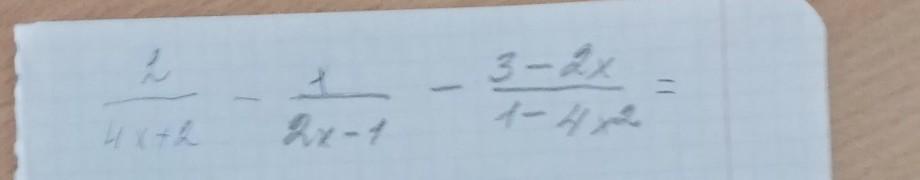 2/(4x+2) - 1/(2x-1) - (3-2x)/(1-4x²) =